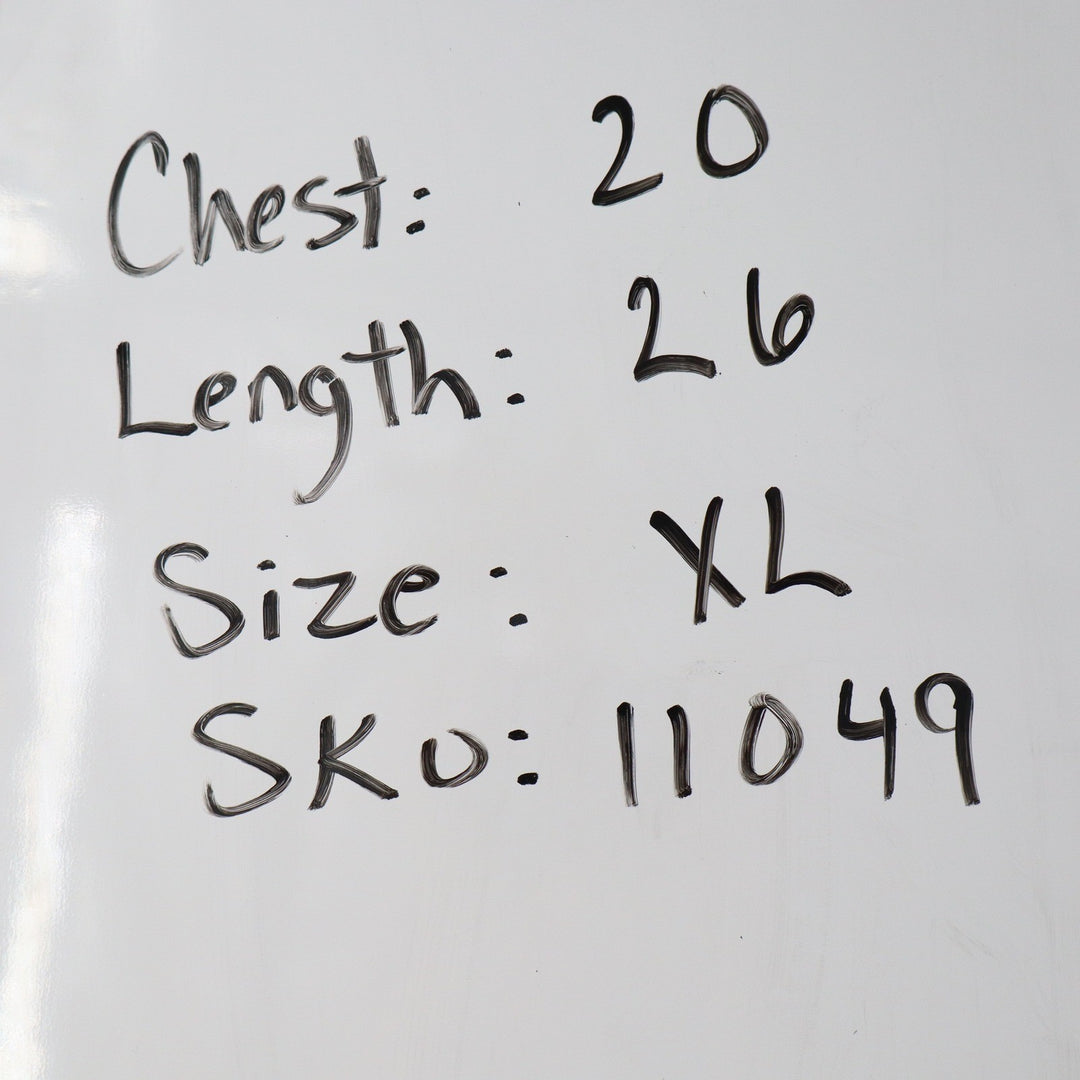 Chest: 20
Length: 26
Size: XL
SKU: 11049